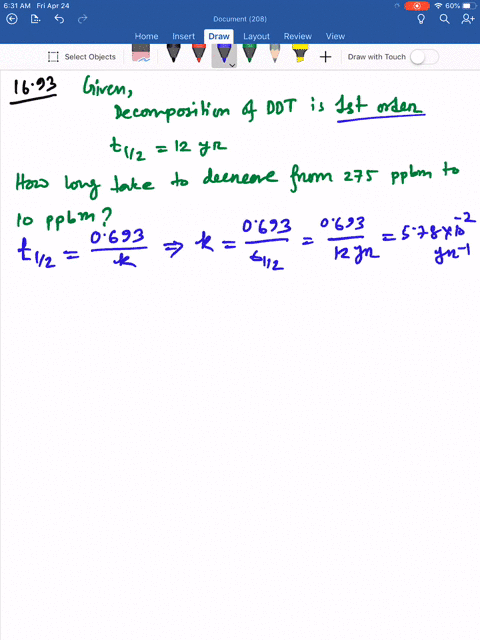 6:31 AM Fri Apr 24
60%
Document (208)
Home Insert Draw Layout Review View
Select Objects
Draw with Touch
16.93 Given,
Decomposition of DDT is 1st order
t1/2 = 12 yr
How long take to decrease from 275 ppbm to
10 ppbm?
t1/2 = 0.693/k ⇒ k = 0.693/t1/2 = 0.693/12 yr = 5.78×10^-2 yr^-1